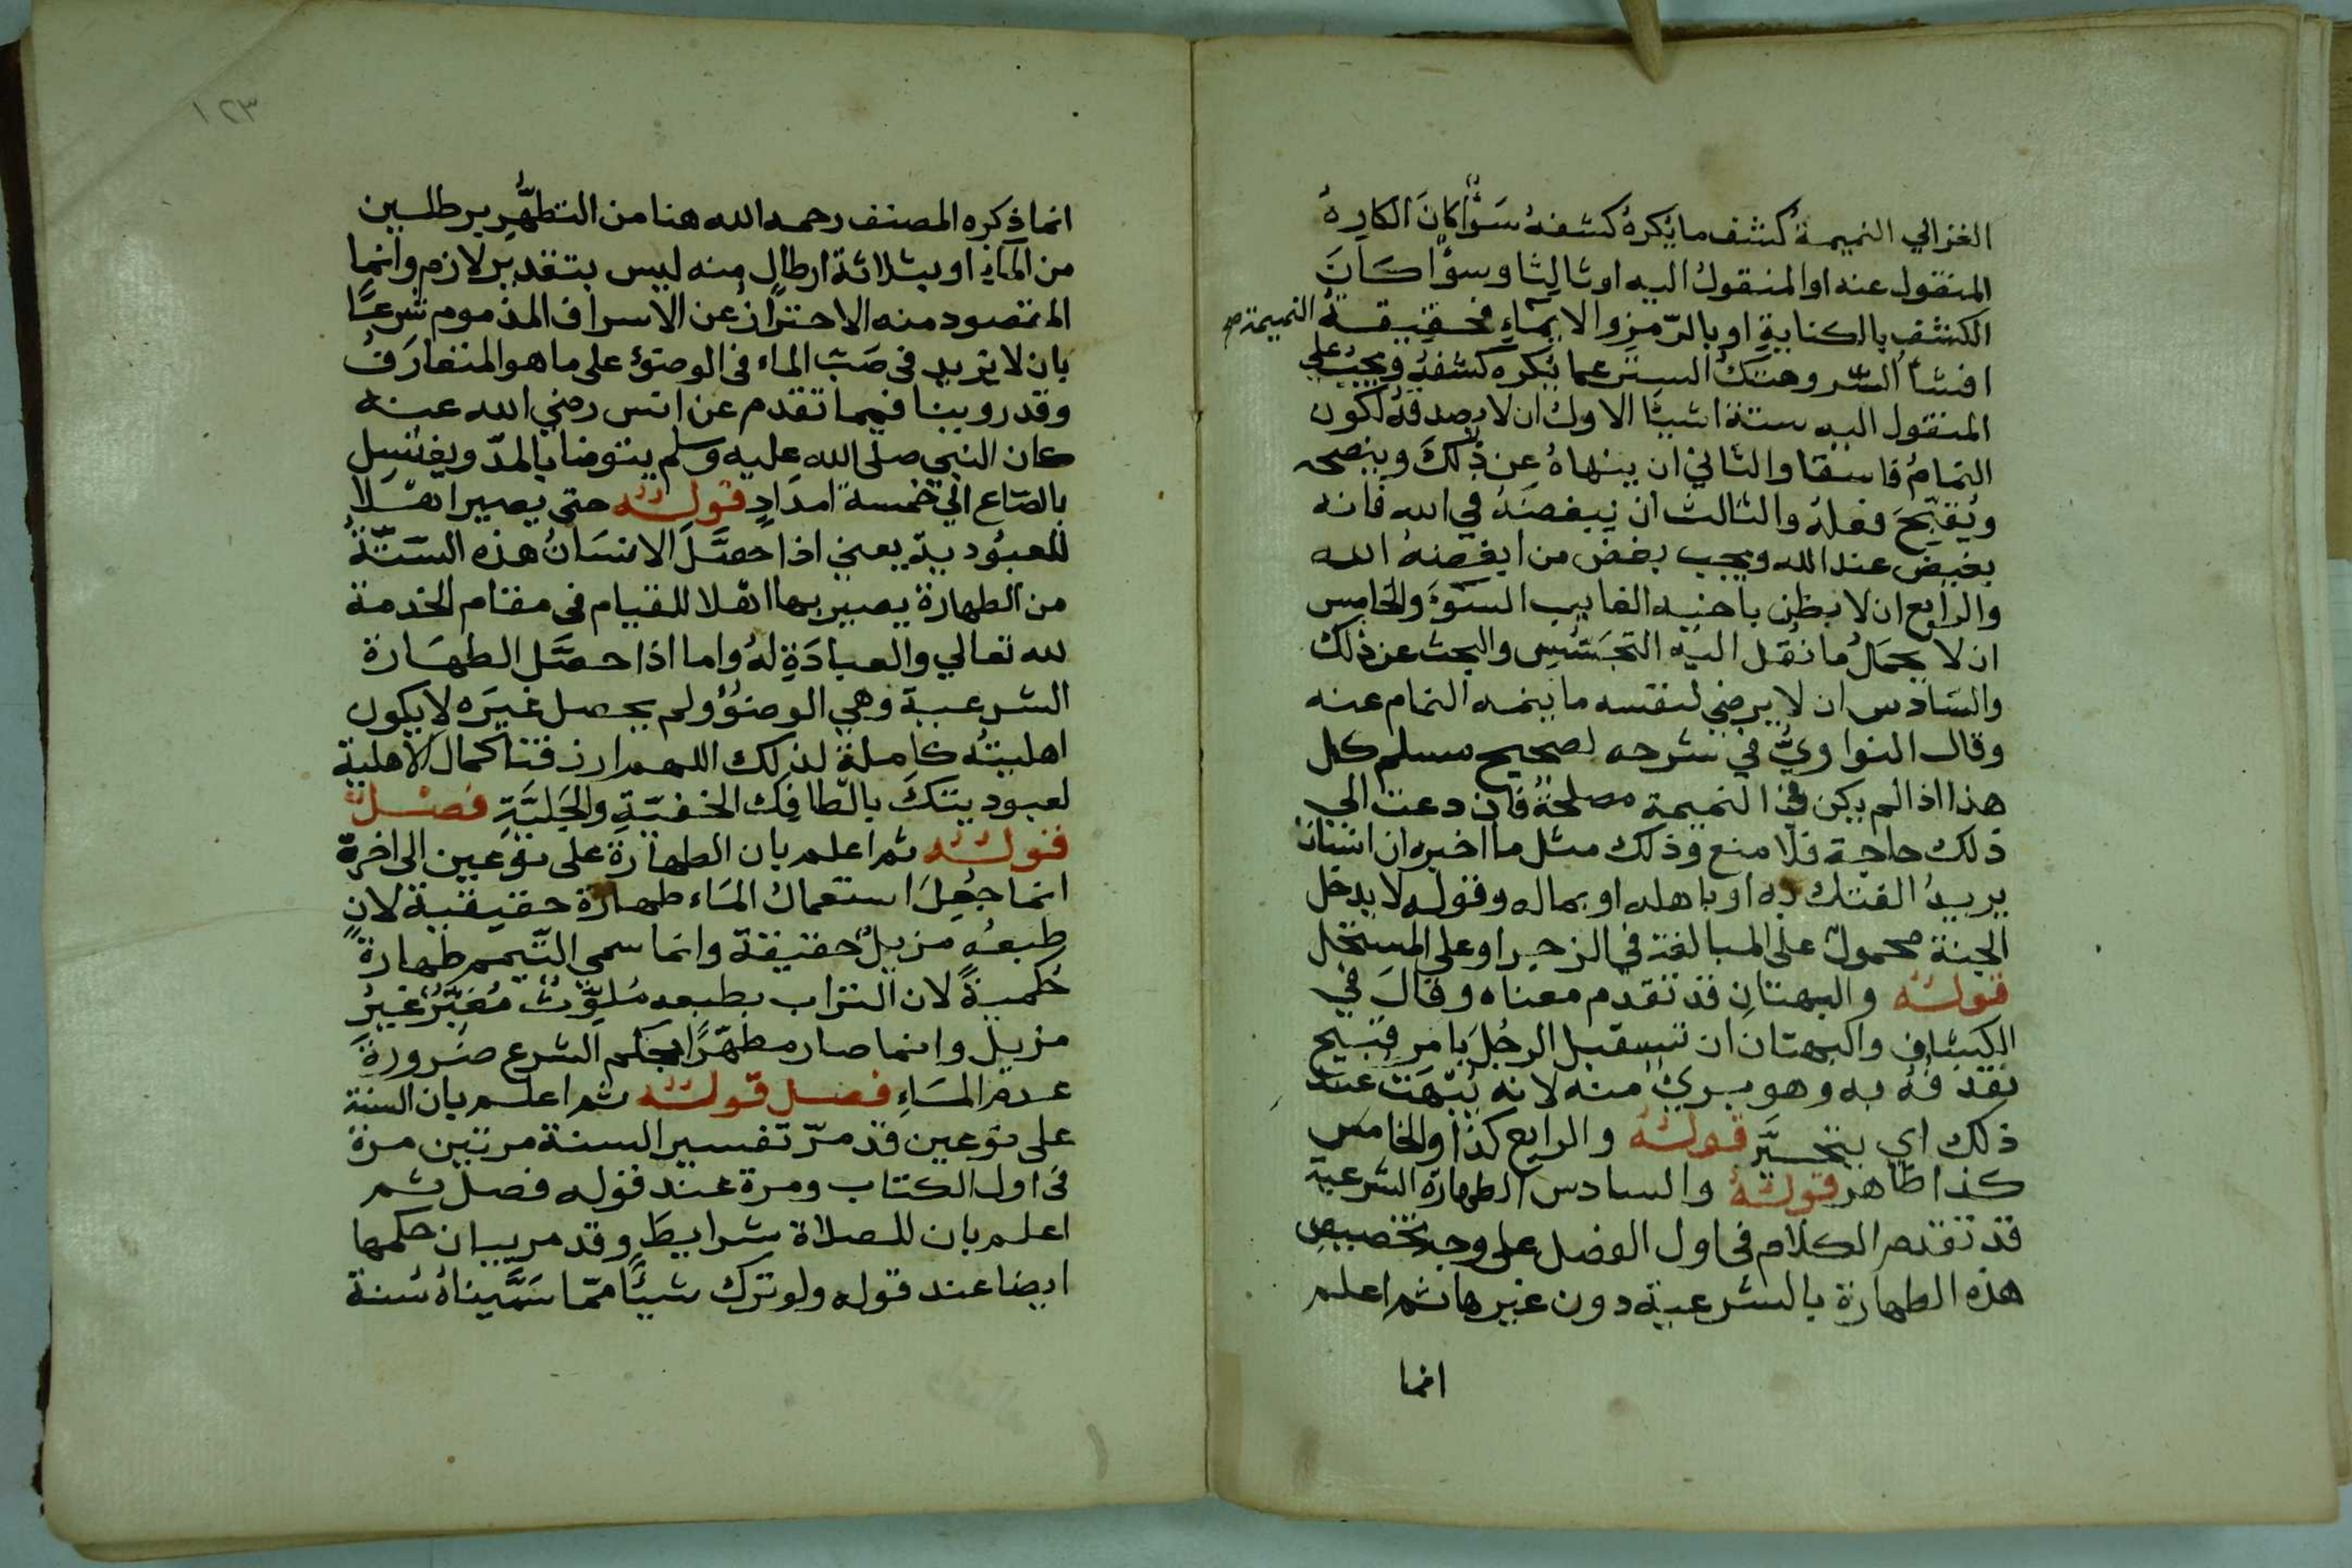 الغزالي النميمة كشف ما يكره كشفه سَوَّا كانَ الكارِهُ
المنقول عنه او المنقول اليه او ثالِثا وسوّا كَانَ
الكشف بالكنايةِ او بالرّمزِ والايمَاءِ فحقيقةُ النميمة صح
افشاُ السّر وهتكُ الستر عما يُكره كشفهُ ويجبُ على
المنقول اليه ستة اشيَّا الاول ان لا يصدقه لكون
النمامُ فاسقا والثاني ان ينهاهُ عن ذلكَ وينصحه
ويُقبّحَ فعلهُ والثالث ان يبغضَهُ في الله فانه
بغيض عند الله ويجب بغض من ابغضهُ الله
والرابع ان لا يظن باخيه الغايب السّوءَ والخامِس
ان لا يحملُ ما نُقل اليه التجسّس والبحث عن ذلك
والسّادس ان لا يرضي لنفسه ما ينمه النمام عنه
وقال النواويُّ في شرحه لصحيح مسلم كل
هذا اذا لم يكن في النميمة مصلحةً فان دعت الي
ذلك حاجة فلا منع وذلك مثل ما اخبره ان انسانا
يريدُ الفتك به او باهله او بماله وقوله لا يدخل
الجنة محمول على المبالغة في الزجر او على المستحل
قولهُ والبهتانِ قد تقدم معناه وقالَ في
الكشاف والبهتان ان تستقبل الرجُلَ بامر قبيح
تقذفهُ به وهو بريٌ منه لانه يُبْهَتَ عند
ذلك اي يتحيَّر قولهُ والرابع كذا والخامس
كذا ظاهر قولهُ والسادس الطهارة الشرعية
قد تقدم الكلام في اول الفصل على وجه تخصيص
هذه الطهارة بالشرعية دون غيرها ثم اعلم
انما
١٢٣
انما ذكره المصنف رحمه الله هنا من التطهُّرِ برطلين
من المآءِ او بثلاثة ارطالٍ منه ليس بتقدير لازم وانما
المقصود منه الاحترازُ عن الاسراف المذموم شرعًا
بان لا يزيد فى صَبّ الماء فى الوضوُ على ما هو المتعارَفُ
وقد روينا فيما تقدم عن انس رضي الله عنه
كان النبي صلى الله عليه وسلم يتوضا بالمدّ ويغتسِل
بالصّاع الي خمسة امدَادٍ قولهُ حتى يصير اهْلا
للعبُودية يعني اذا حصَّلَ الانسَانُ هذه السّتةُ
من الطهارة يصير بها اهلا للقيام فى مقام الخدمة
لله تعالي والعبادَةِ لهُ واما اذا حصَّل الطهَارة
الشرعية وهي الوضوُ ولم يحصل غيرَه لا يكون
اهليتُه كاملة لذلك اللهم ارزقنا كمال الاهلية
لعبوديتكَ بالطافِك الخفيّةِ والجَليَّةِ فصْلٌ
قولهُ ثم اعلم بان الطهارة على نوعين الى اخرهّ
انما جُعِلَ استعمالُ المَاء طهارة حقيقية لان
طبعهُ مزيلٌ حقيقة وانما سمي التّيمم طهارةً
حُكميةً لان التراب بطبعه مُلوِّثٌ مُغبِّرٌ غيرُ
مزيل وانما صار مطهّرًا بحكم الشرع ضرورةَ
عدم المَاءِ فصل قولهُ ثم اعلم بان السنة
على نوعين قد مرّ تفسير السنة مرتين مرة
فى اول الكتاب ومرة عند قوله فصل ثم
اعلم بان للصلاة شرايطَ وقد مر بيان حكمها
ايضا عند قوله ولو ترك شيئًا ممّا سَمَّيناهُ سُنة